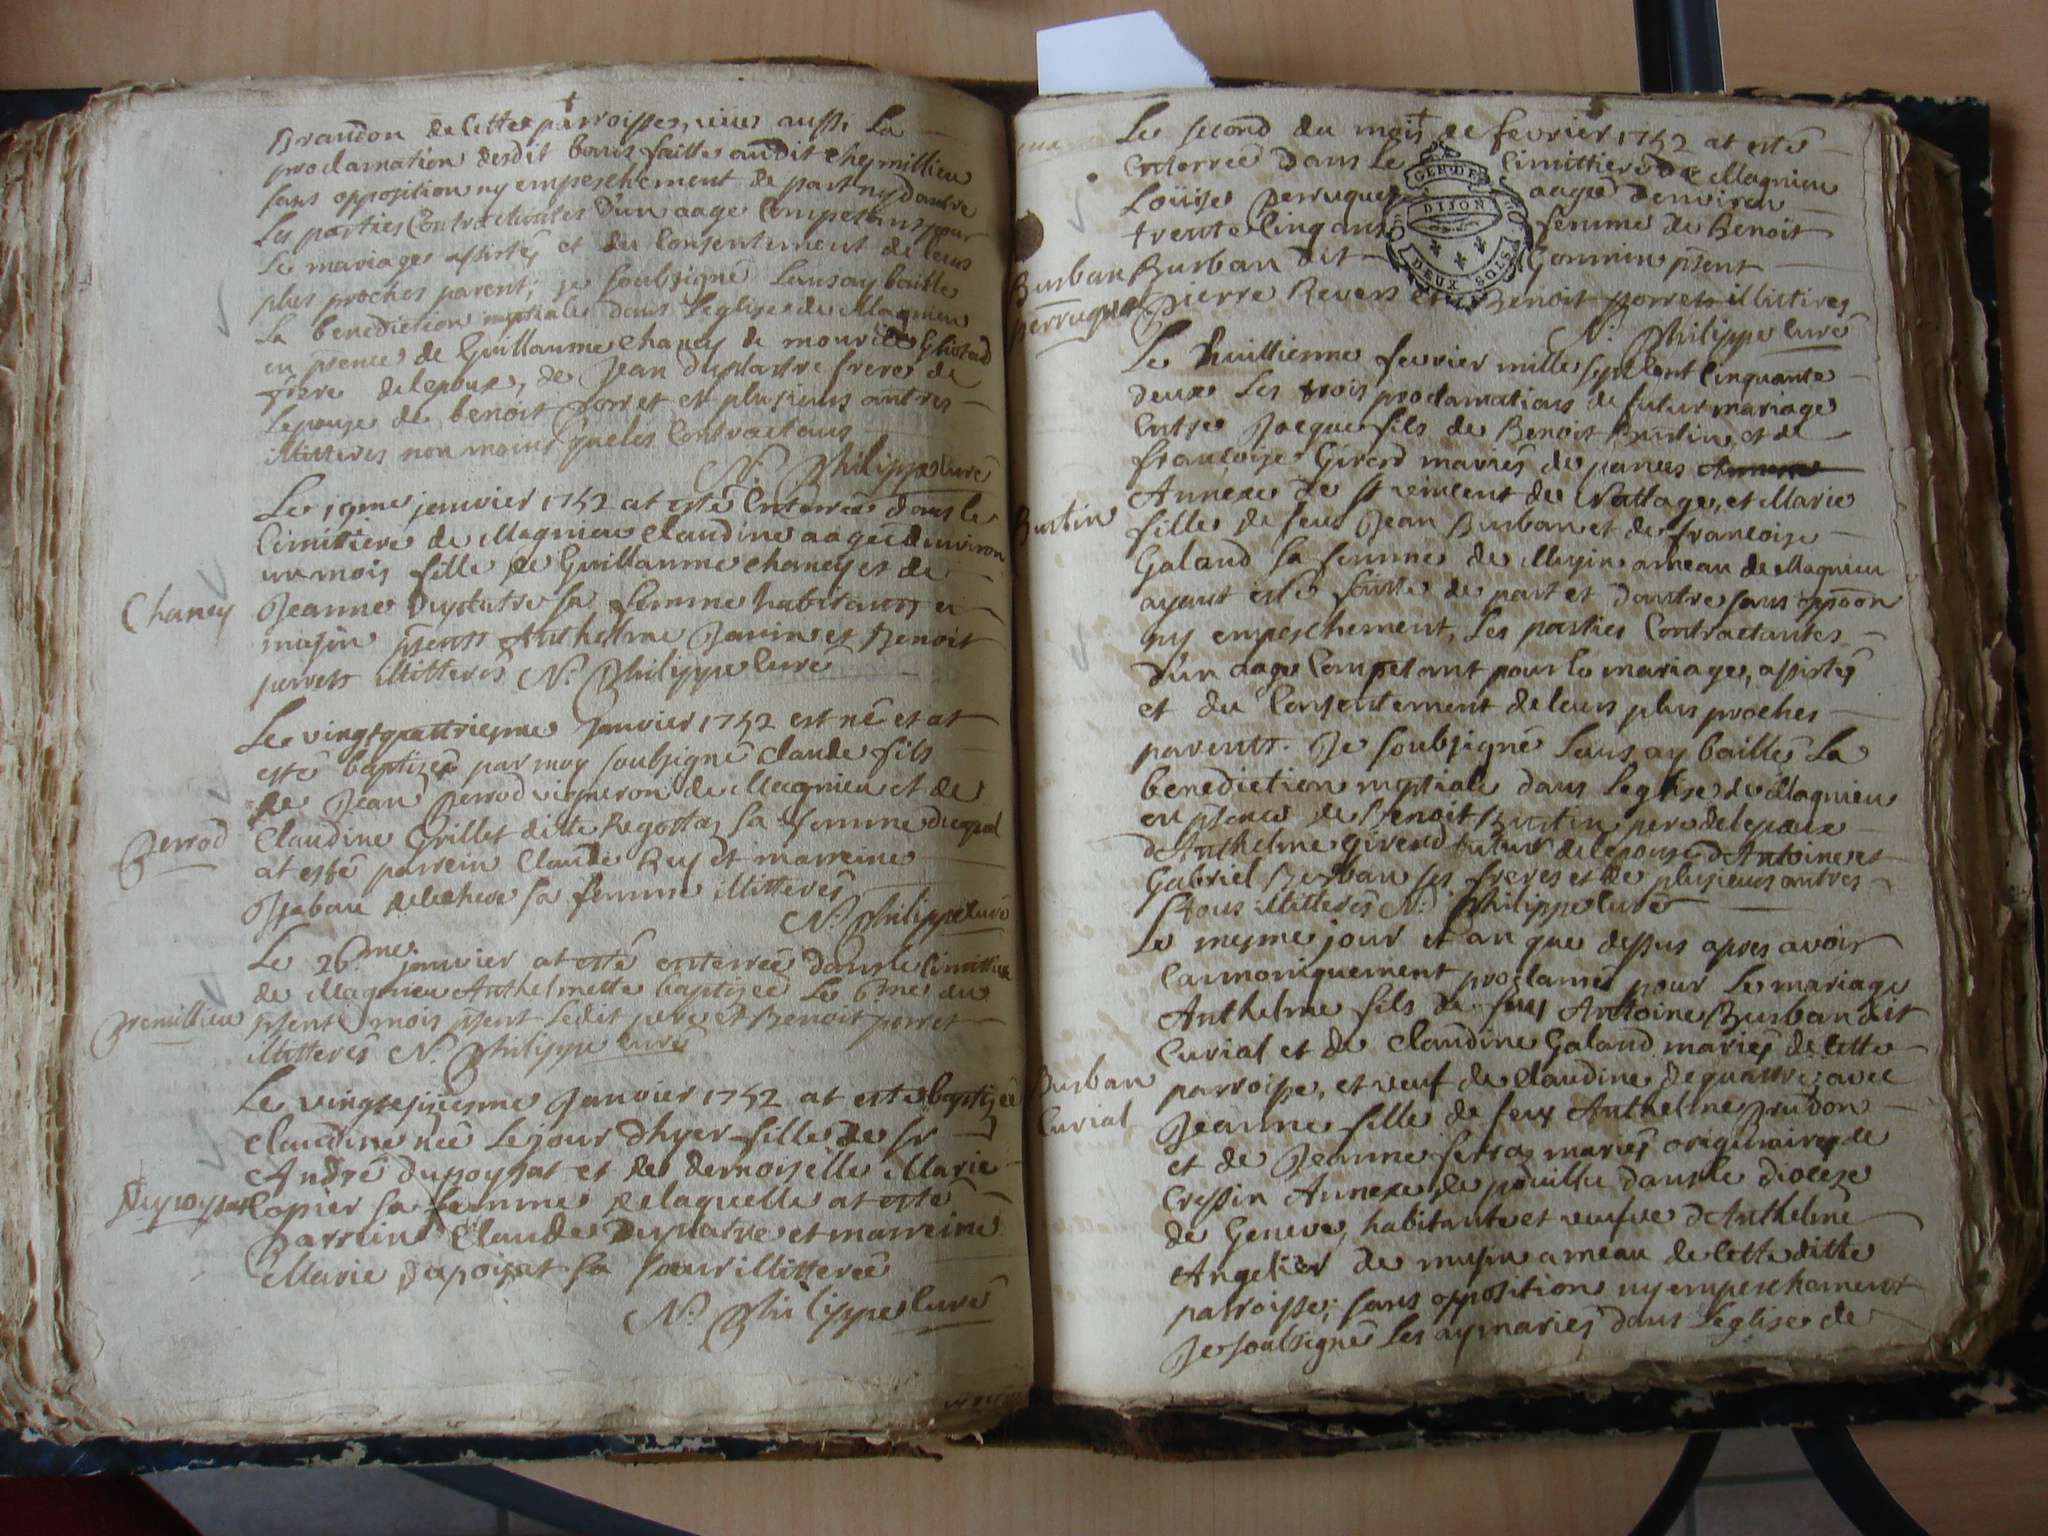 Brandon de cette parroisse, veue aussi la
proclamation desdit bans faitte audit cheymillieu
sans opposition ny empeschement de part ny dautre
Les parties Contractantes d'un aage Competant pour
Le mariage assistés et du Consentement de leurs
plus proches parent; je soubsigné Leurs ay baillé
La benediction nuptiale dans Leglise de Magnieu
en p̃sence de Guillaume Chaney de
frere de lepoux, de Jean Duplastre frere de
Lepouse de benoit Porret et plusieurs autres
illitterés non moins que les Contractans
N. Philippe Curé
Le 19me janvier 1752 at esté Enterrée dans le
Cimittiere de Magnieu Claudine aagée denviron
un mois fille de Guillaume Chaney et de
Chaney
Jeanne Duplatre sa femme habitants en
musin p̃sents Anthelme Janin et Benoit
perret illitterés N. Philippe Curé
Le vingtquattriesme Janvier 1752 est né et at
esté baptizé par moy soubsigné Claude fils
de Jean Perrod vigneron de Magnieu et de
Perrod
Claudine Grillet ditte Regottaz sa femme duquel
at esté parrein Claude Rey et marreine
sa femme illitterés
N. Philippe Curé
Le 26me janvier at esté enterrée dans le Cimittiere
de Magnieu Anthelmette baptizée Le 6me du
Premillieu
p̃sent mois p̃sent Ledit pere et Benoit perret
illitterés N. Philippe Curé
Le vingtesixiesme Janvier 1752 at esté baptizée
Claudine née Le jour d'hyer fille de sr
André dupoyzat et de demoiselle Marie
Dupoyzat
Copier sa femme de laquelle at esté
Parrein Claude Duplatre et marreine
Marie dupoizat sa soeur illitterée
N. Philippe Curé
Le second du mois de fevrier 1752 at esté
Enterrée dans Le Cimittiere de Magnieu
Loüise Perruquet aagée denviron
trente Cinq ans femme de Benoit
GEN DE DIJON
DEUX SOLS
Burban
Burban dit Gonnin p̃sent
perruquet
Pierre Revers et Benoit Porret illittires
N. Philippe Curé
Le huittienne fevrier mille sept Cent Cinquante
deux Les trois proclamations de futur mariage
Entre Jacque fils de Benoit Burtin et de
francoise Girerd mariés de
Annexe de st vincent de et Marie
Burtin
fille de feu Jean Burban et de francoise
Galand sa femme de Musin ameau de Magnieu
ayant esté faitte de part et dautre sans oppõon
ny empeschement, Les parties Contractantes
d'un aage Competant pour le mariage, assistés
et du Consentement de leurs plus proches
parents. Je soubsigné Leurs ay baillé La
benediction nuptiale dans Leglise de Magnieu
en p̃sence de Benoit Burtin pere de lepoux
d'Anthelme girerd tuteur de lepouse d'Antoine et
Gabriel Burban ses freres et de plusieurs autres
tous illitterés N. Philippe Curé
Le mesme jour et an que dessus apres avoir
Canoniquement proclamé pour Le mariage
Anthelme fils de feu Antoine Burban dit
Curial et de Claudine Galand mariés de Cette
Burban
Curial
parroisse, et veuf de Claudine dequattre avec
Jeanne fille de feu Anthelme Prudon
et de Jeanne ferraz mariés originaires de
Cressin Annexe de pouillie dans le dioceze
de Geneve, habitante et veufve d'Anthelme
Angelier de musin ameau de Cette ditte
parroisse; sans opposition ny empeschement
Je soubsigné Les ay mariés dans Leglise de